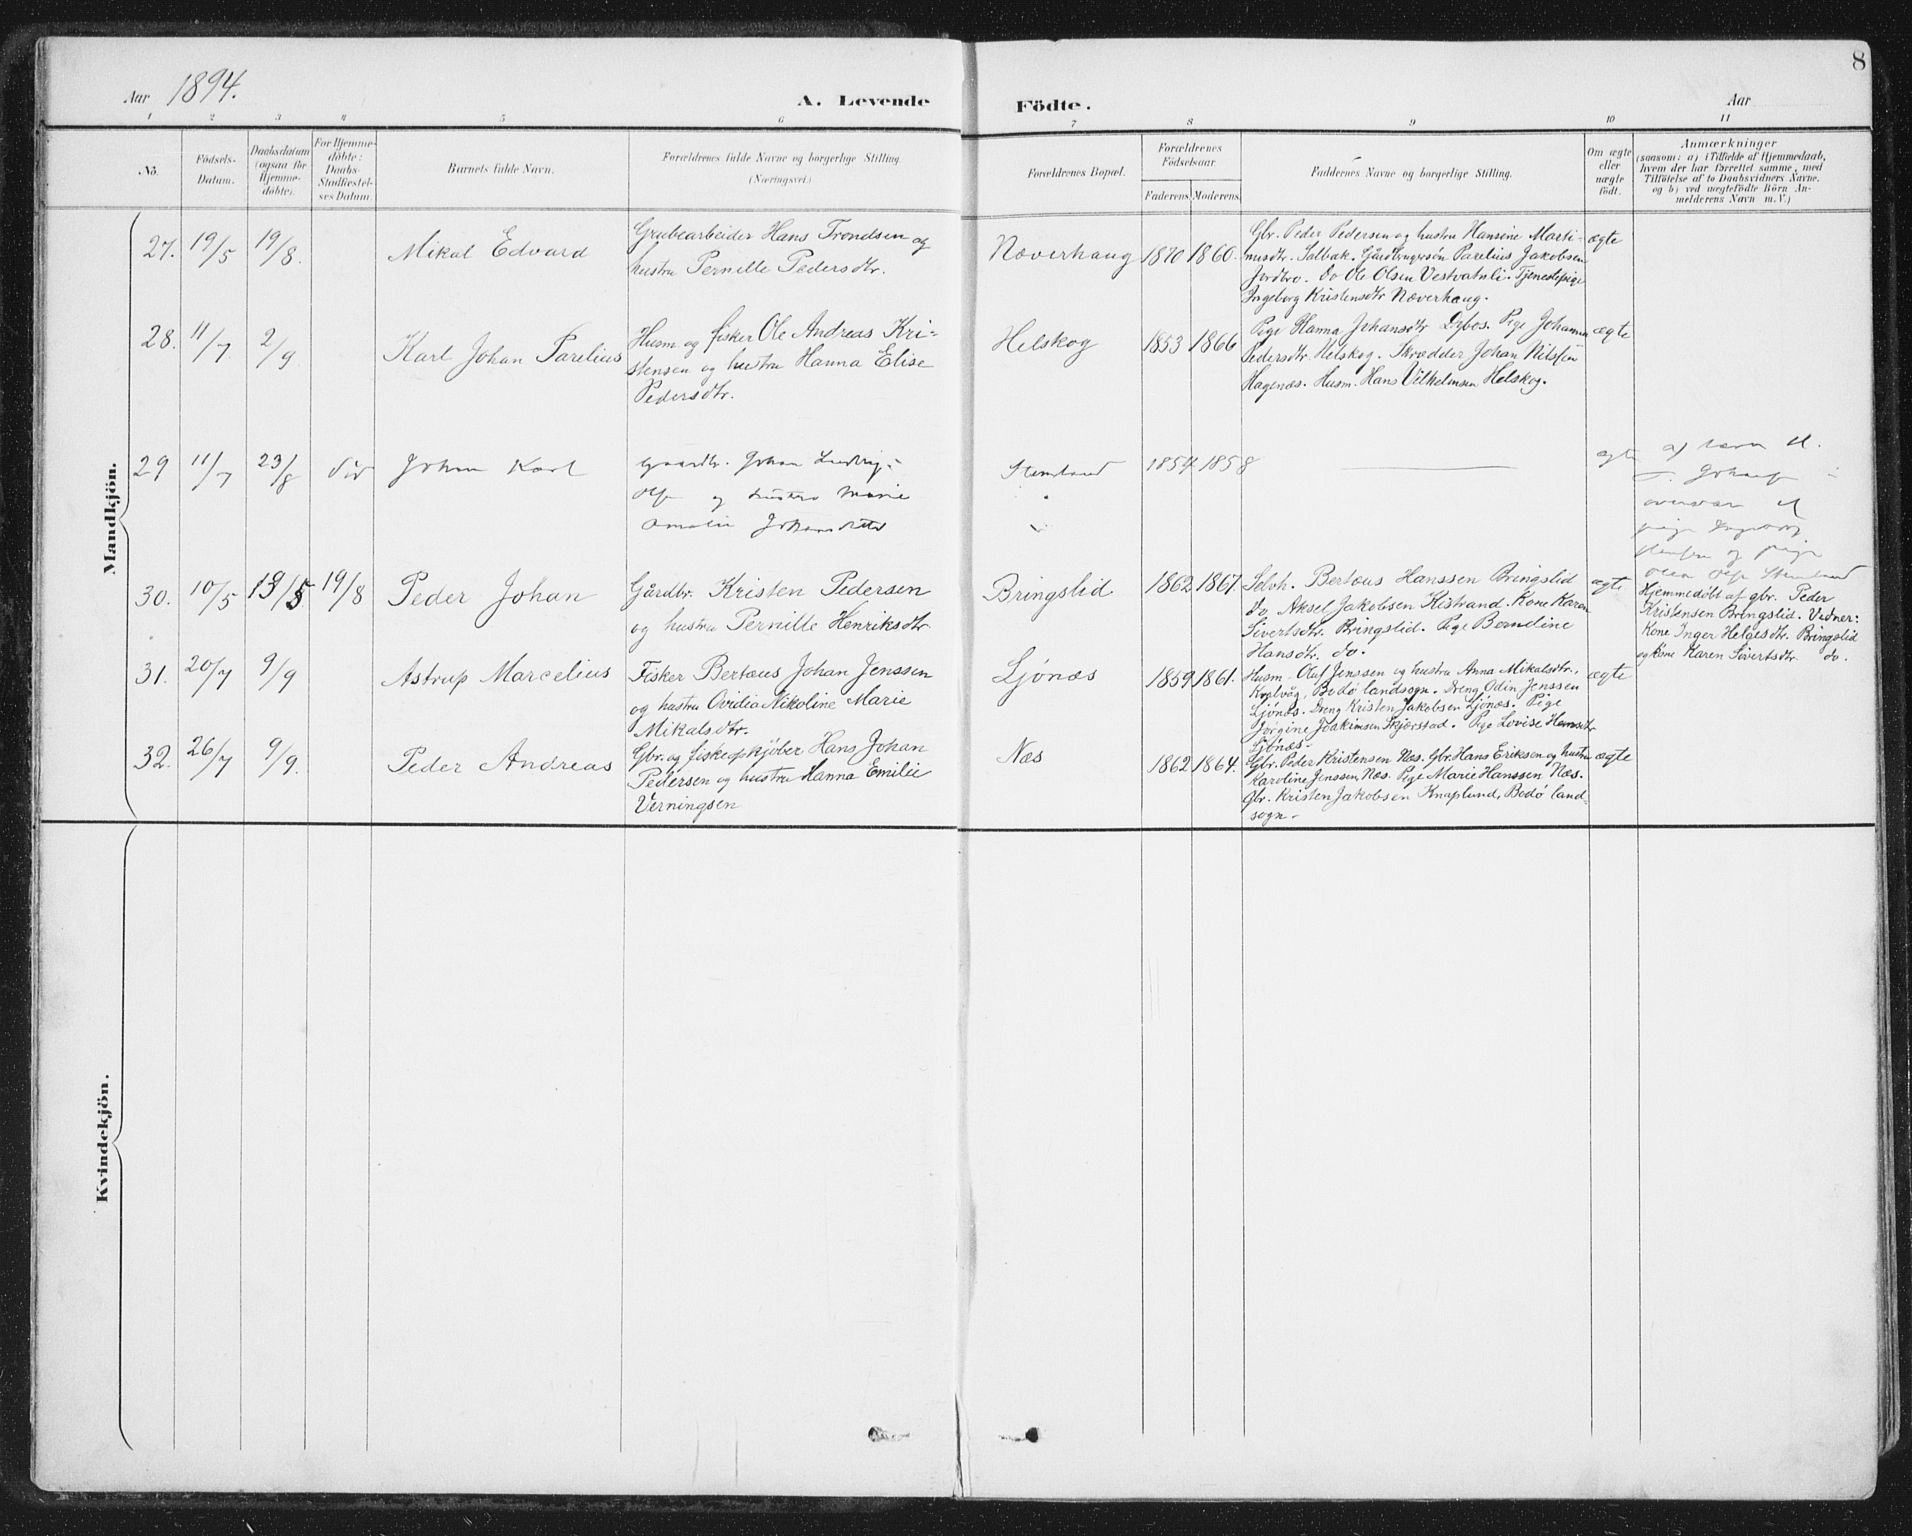 8
Aar 1894.
A. Levende
Födte.
Aar
1 2 3 4 5 6 7 8 9 10 11
No.
Födsels-
Datum.
Daabsdatum
(ogsaa för
Hjemme-
döbte).
For Hjemme-
döbte:
Daabs-
Stadfæstel-
ses Datum
Barnets fulde Navn.
Forældrenes fulde Navne og borgerlige Stilling.
(Næringsvei.)
Forældrenes Bopæl.
Forældrenes
Födselsaar.
Faderens. Moderens.
Faddernes Navne og borgerlige Stilling.
Om ægte
eller
uægte
födt.
Anmærkninger
(saasom: a) i Tilfælde af Hjemmedaab,
hvem der har forrettet samme, med
Tilföielse af to Daabsvidners Navne.
og b) ved uægtefödte Börn An-
melderens Navn m. V.)
Mandkjön.
27. 19/5 19/8. Mikal Edvard
Grubearbeider Hans Trondsen og
hustru Pernille Pedersdtr.
Næverhaug 1870 1860.
Gbr. Peder Pedersen og hustru Hansine Marti-
nusdtr. Salbak. Gårdbrugersøn Parelius Jakobsen
Jordbro. Do Ole Olsen Vestvatnli. Tjenestepige
Ingeborg Kristensdtr Næverhaug.
ægte
28. 11/7. 2/9. Karl Johan Parelius
Husm og fisker Ole Andreas Kri-
stensen og hustru Hanna Elise
Pedersdtr.
Helskog 1853 1866
Pige Hanna Johansdtr Dybos. Pige Johanna
Pedersdtr. Helskog. Skrædder Johan Nilssen
Hagenæs. Husm. Hans Vilhelmsen Helskog.
ægte
29 11/7 23/8 Johan Karl
Gaardbr. Johan Ludvig
Ols og hustru Marie
Amalie Johansdatter
Stemland
1854 1858
ægte
pige Ingeborg
og pige
Olea Ols Stemland
30. 10/5 13/5 19/8 Peder Johan
Gårdbr. Kristen Pedersen
og hustru Pernille Henriksdtr
Bringslid 1862 1867.
Selvh. Bertæus Hanssen Bringslid
Do, Aksel Jakobsen Kistrand. Kone Karen
Sivertsdtr. Bringslid. Pige Berndine
Hansdtr. do.
ægte
Hjemmedøbt af gbr. Peder
Kristensen Bringslid. Vidner:
Kone Inger Helgesdtr. Bringslid
og kone Karen Sivertsdtr. do.
31. 20/7 9/9 Astrup Marcelius
Fisker Bertæus Johan Jenssen
og hustru Ovidia Nikoline Marie
Mikalsdtr.
Ljönæs 1859 1861.
Husm. Oluf Jenssen og hustru Anna Mikalsdtr.
Kvalvåg, Bodø landsogn. Dreng Odin Jenssen
Ljönæs. Dreng Kristen Jakobsen Ljönæs. Pige
Jørgine Joakimsen Skjerstad. Pige Lovise Hansdtr
Ljönæs.
ægte
32. 26/7 9/9. Peder Andreas
Gbr. og fiskeopkjøber Hans Johan
Pedersen og hustru Hanna Emilie
Verningsen
Næs 1862 1864.
Gbr. Peder Kristensen Næs. Gbr. Hans Eriksen og hustru
Karoline Jenssen, Næs. Pige Marie Hanssen Næs.
Gbr. Kristen Jakobsen Knaplund, Bodø land-
sogn.
ægte
Kvindekjön.